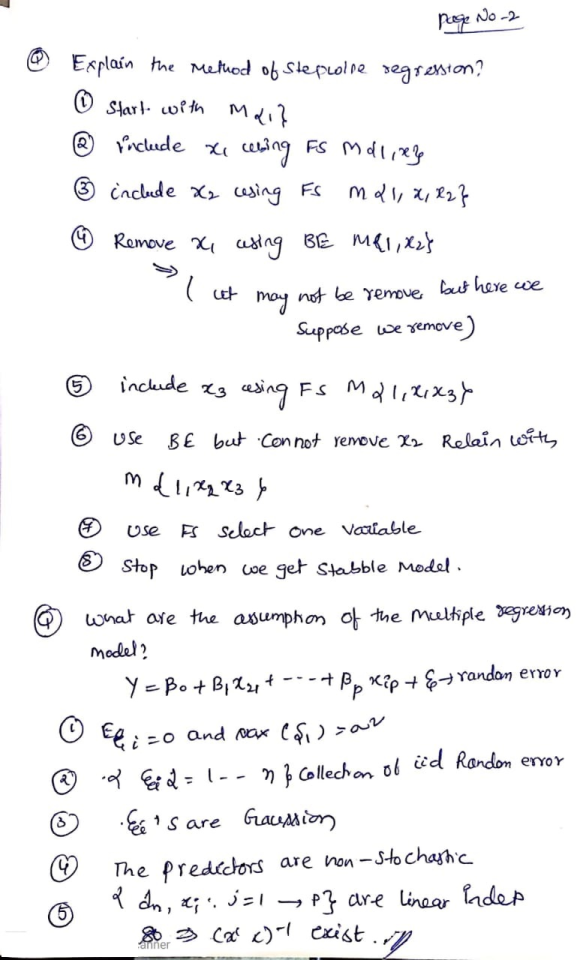 Page No-2
Q Explain the Method of Stepwise regression?
① Start with M{1}
② include x₁ using FS M{1,x₁}
③ include x₂ using FS M{1, x₁, x₂}
④ Remove x₁ using BE M{1,x₂}
⇒ ( it may not be remove, but here we
Suppose we remove)
⑤ include x₃ using FS M{1,x₁x₃}
⑥ Use BE but Connot remove x₂ Relain with
M {1,x₂x₃}
⑦ Use FS select one Variable
⑧ Stop when we get Stabble Model.
Q what are the assumption of the Multiple regression
model?
Y = β₀ + β₁x₂₁ + ---+ βₚ xᵢₚ + ε → random error
① Eεᵢ = 0 and var (ε₁) = σ²
② {εᵢ i = 1 -- n} Collection of iid Random error
③ εᵢ's are Gaussion
④ The predictors are non-stochastic
⑤ { dₙ, xⱼ : j=1 → P} are linear Indep
⇒ (x' x)⁻¹ exist.
anner